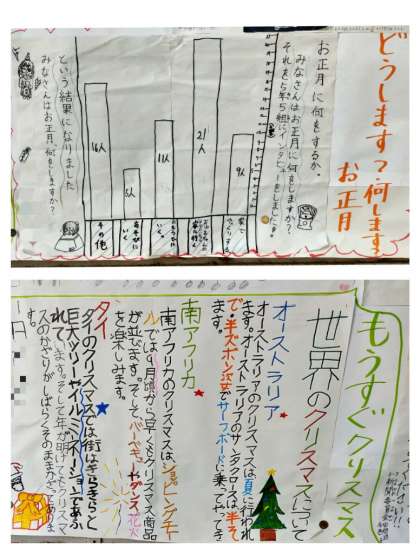 どうします？何します
お正月
お正月に何をするか。
みなさんはお正月何をしますか？
それを5年5組にインタビューをしました。
9人
21人
11人
5人
16人
その他
という結果になりました
みなさんはお正月、何をしますか？
もうすぐクリスマス
世界のクリスマスについて
オーストラリア
オーストラリアのクリスマスは、夏に行われ
ます。オーストラリアのサンタクロースは半そ
で・半ズボン姿でサーフボードに乗ってやってき
ます。
南アフリカ
南アフリカのクリスマスは、ショッピングモー
ルでは、9月頃から早くもクリスマス商品
が並びます。そして、バーベキューやダンス、花火
を楽しみます。
タイ
タイのクリスマスでは街はきらきらと
巨大ツリーやイルミネーションであふ
れています。そして年が明けてもクリスマ
スのかざりがしばらくそのままかざってありま
す。